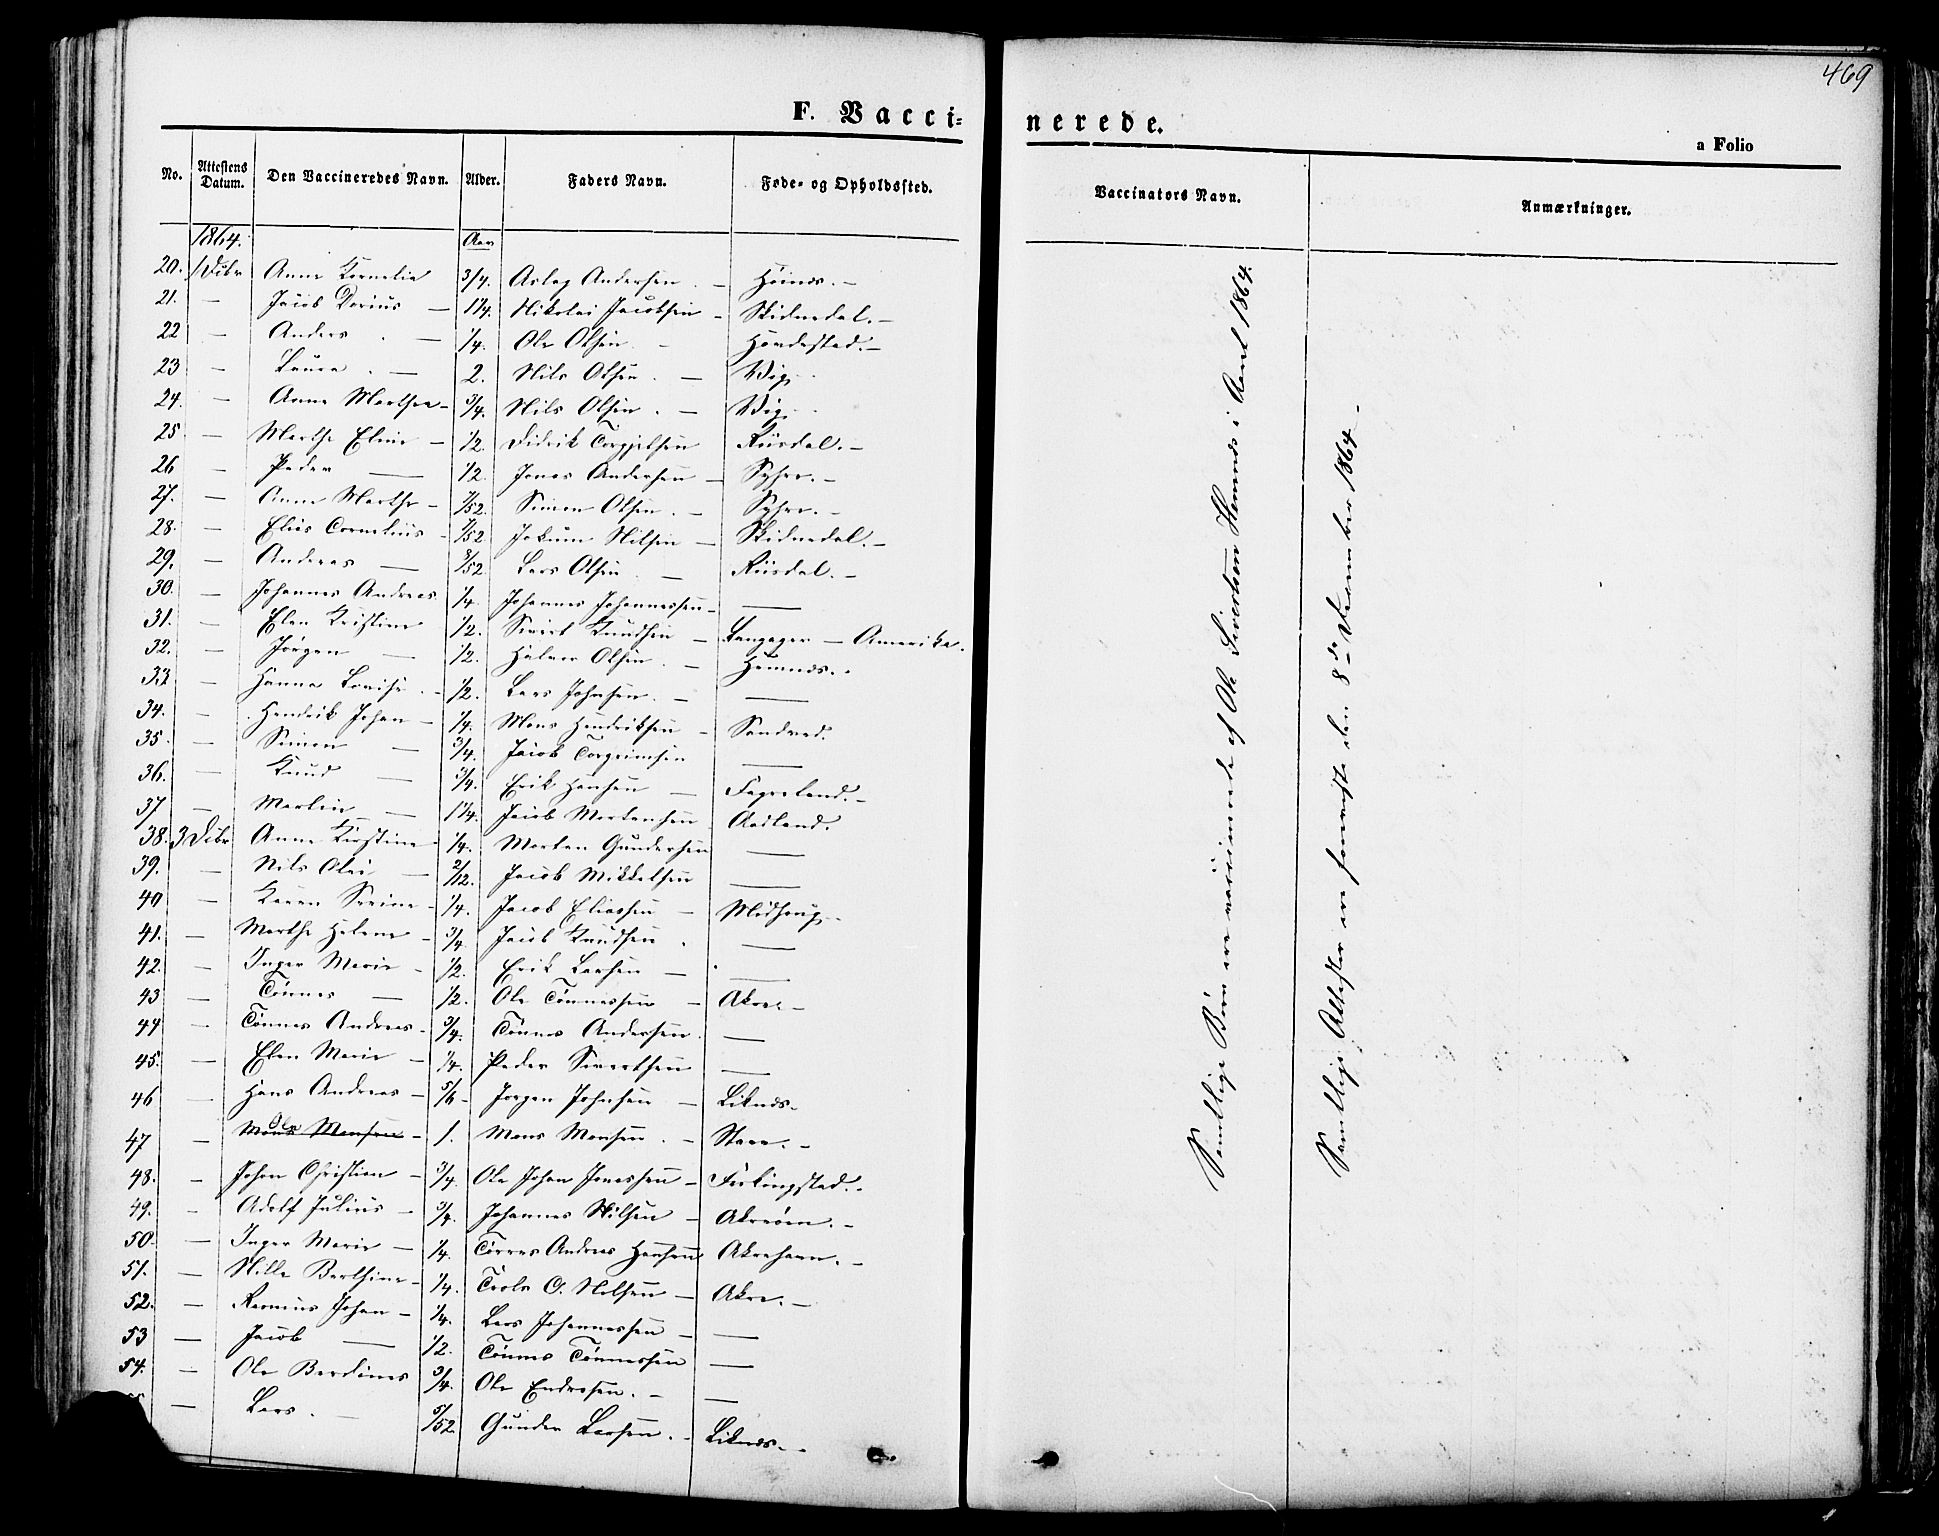 469
F. Vacci=
nerede.
a Folio
No. Attestens Datum. Den Vaccineredes Navn. Alder. Faders Navn. Føde- og Opholdssted. Vaccinators Navn. Anmærkninger.
1864. Aar
20. 1 Dcbr Anne Kornelia 3/4. Aslag Andersen. — Høinæs. —
21. — Jacob Dorius — 1 1/4. Nikolai Jacobsen — Skidnedal. —
22 — Anders — 1/4. Ole Olsen. — Hondestad. —
23 — Laura. — 2. Nils Olsen. — Wig.
24. — Anne Marthea — 3/4. Nils Olsen. — Wig.
25 — Marthe Eline — 1/2. Didrik Torgjelsen Riisdal. —
26 — Peder — 1/2. Jonas Andersen — Syhre. —
27. — Anne Marthe — 7/52. Simon Olsen. — Syhre. —
28. — Elias Cornelius — 7/52 Jokum Nilsen — Skidnedal. —
29. — Andreas — 8/52 Lars Olsen. — Riisdal. —
30. — Johannes Andreas 1/4. Johannes Johannessen —
31. — Elen Kristine 1/2. Sivert Knudsen — Langager — Amerika.
32. — Jørgen — 1/2. Halvor Olsen. — Hemnæs. —
33 — Hanna Lovise. — 1/2. Lars Johnsen. — —
34. — Hendrik Johan — 1/4. Mons Hendriksen — Sandved.
35. — Simon — 3/4. Jacob Torgrimsen —
36. — Knud — 3/4. Erik Hansen — Fagerland. —
37 — Martin — 1 1/4. Jacob Mortensen Aadland.
38. 3 Dcbr Anne Kirstine 1/4. Morten Gundersen —
39. — Nils Olai — 2/12. Jacob Mikkelsen —
40 — Karen Serine — 1/4. Jacob Eliassen — Medhoug. —
41. — Marthe Helene — 3/4. Jacob Knudsen. —
42. — Inger Marie — 1/2. Erik Larsen — —
43 — Tønnes — 1/2. Ole Tønnessen — Akre. —
44 — Tønnes Andreas — 3/4. Tønnes Andersen. —
45. — Elen Marie — 1/4. Peder Sivertsen —
46 — Hans Andreas — 5/6 — Jørgen Johnsen — Liknæs. —
Ole
47 — Mons Monsen — 1. Mons Monsen. — Stave. —
48. — Johan Christian — 3/4. Ole Johan Jonassen — Ferkingstad. —
49. — Adolf Julius — 3/4. Johannes Nilsen — Akreøen. —
50. — Inger Marie — 1/4. Torres Andreas Hansen Akrehavn. —
51. — Nille Berthine — 1/4. Trols O. Nilsen — Akre. —
52. — Rasmus Johan — 1/4. Lars Johannessen — —
53 — Jacob — 1/2. Tønnes Tønnessen —
54. — Ole Berdines 3/4. Ole Endresen. — —
— Lars. — 5/52 Gunder Larsen. — Liknæs. —
Samtlige Børn ere vaccinerede af Ole Sivertsen Hemnæs i Aaret 1864.
Samtlige Attester ere foreviste den 8de December 1864. —